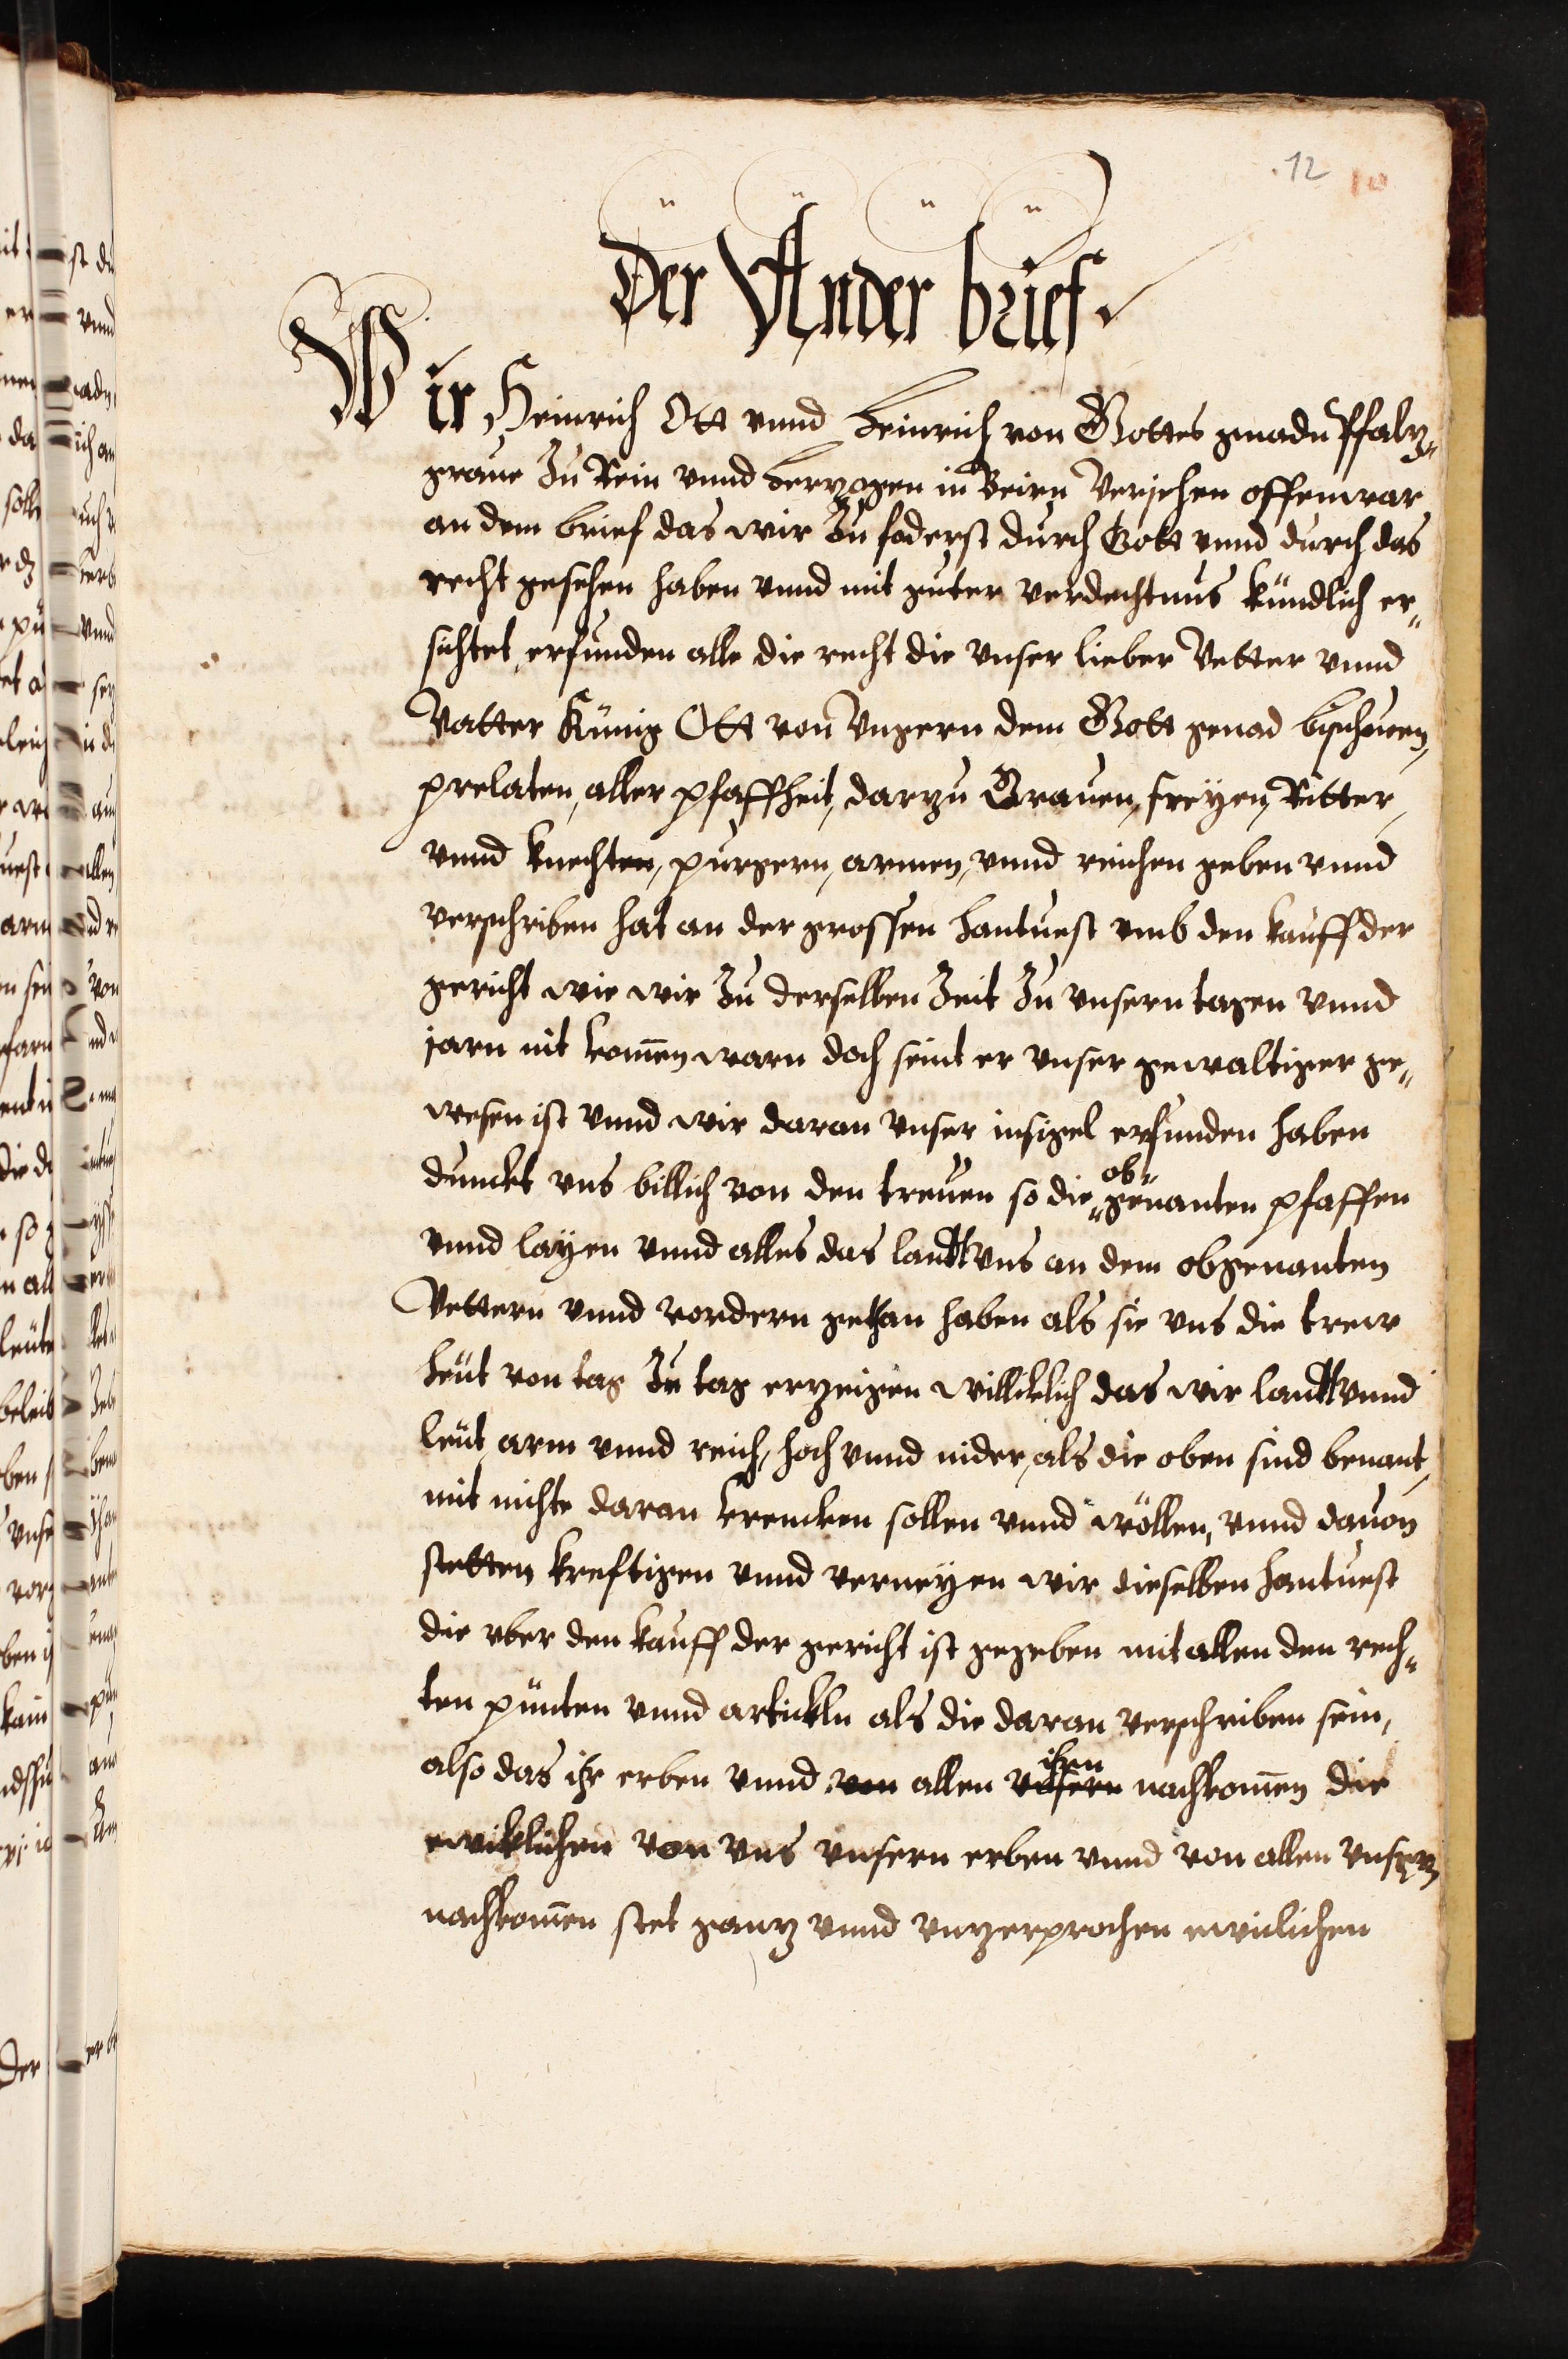 12 10
Der Ander brief
Wir Heinrich Ott vnnd Heinrich von Gottes gnadn Pfalz„
graue Zu Rein vnnd Herzogen in Beirn Verjehen offenwar
an dem brief das wir Zu foderst durch Gott vnnd durch das
recht gesehen haben vnnd mit guter verdechtnus kündlich er„
sichtet, erfunden alle die recht die vnser lieber Vetter vnnd
Vatter Künig Ott von Vngern dem Gott genad bischouen,
prelaten, aller pfaffheit, darzu Grauen, freyen, Ritter,
vnnd knechten, purgern, armen, vnnd reichen geben vnnd
verschriben hat an der grossen hantuest vmb den kauff der
gericht wie wir Zu derselben Zeit Zu vnsern tagen vnnd
jarn nit komen warn doch seint er vnser gewaltiger ge„
wesen ist vnnd wir daran vnser insigel erfunden haben
dunckt vns billich von den treuen so die ob„genanten pfaffen
vnnd layen vnnd alles das lantt vns an dem obgenanten
Vettern vnnd vordern gethan haben als sie vns die trew
heut von tag Zu tag erzeigen williklich das wir lantt vnnd
leut arm vnnd reich, hoch vnnd nider, als die oben sind benant,
mit nichte daran krencken sollen vnnd wöllen, vnnd dauon
stetten kreftigen vnnd verneyen wir dieselben hantuest
die vber den kauff der gericht ist gegeben mit allen den rech„
ten pünten vnnd artickln als die daran verschriben sein,
also das ihr erben vnnd von allen vnsern ihren nachkomen die
ewiklichen von vns vnsern erben vnnd von allen vnsern
nachkomen stet gantz vnnd vnzerprochen ewiclichen